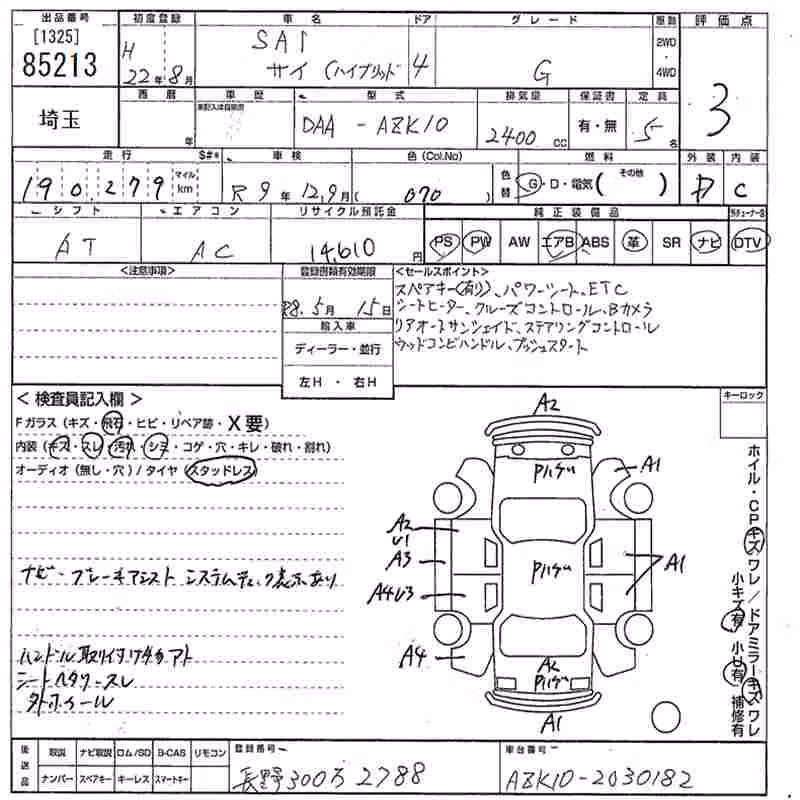 出品番号 初度登録 車名 ドア グレード 駆動 評価点
[1325]
85213
H 22年8月
SAI
サイ(ハイブリッド
4
G
2WD
・
4WD
3
埼玉
西暦 車歴 型式 排気量 保証書 定員
年
DAA-AZK10
2400cc
有・無
5名
走行 S#* 車検 色(Col.No) 燃料 外装 内装
190,279 マイル km
R9年12,9月(070)
色替
G・D・電気( その他 )
D C
シフト エアコン リサイクル預託金 純正装備品
AT
AC
14,610円
PS PW AW エアB ABS 革 SR ナビ DTV
<注意事項> 登録書類有効期限 <セールスポイント>
R8.5月15日
輸入車
ディーラー・並行
左H・右H
スペアキー(有り)、パワーシート、ETC
シートヒーター、クルーズコントロール、Bカメラ
リアオートサンシェイド、ステアリングコントロール
ウッドコンビハンドル、プッシュスタート
キーロック
<検査員記入欄>
Fガラス(キズ・飛石・ヒビ・リペア跡・X要)
内装(キズ・スレ・汚れ・シミ・コゲ・穴・キレ・破れ・割れ)
オーディオ(無し・穴)/タイヤ(スタッドレス)
ナビ・ブレーキアシスト システムチェック表示あり
ハンドル取り付け
シートヘタリ・スレ
A2
Pハゲ
A1
A2
U1
A3
Pハゲ
A1
A4U3
A4
A2
Pハゲ
A1
ホイル・CPキズワレ/ドアミラーキズワレ
小キズ有 小U有 補修有
後送品
取説 ナビ取説 ロム/SD B-CAS リモコン
ナンバー スペアキー キーレス スマートキー
登録番号
長野300 2788
車台番号
AZK10-2030182